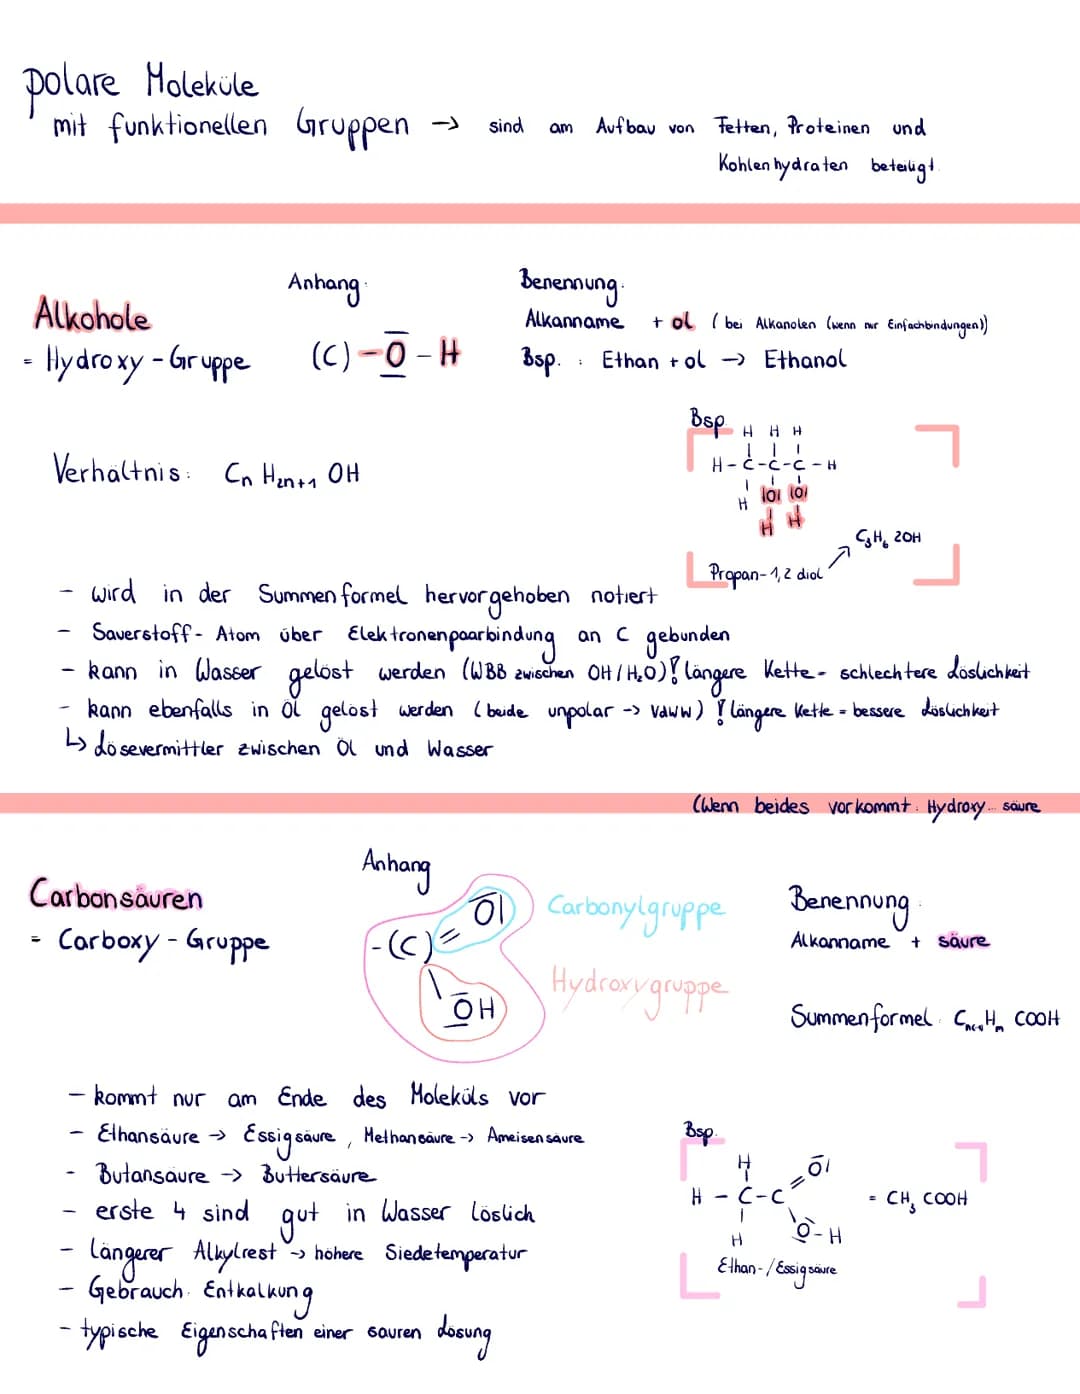 polare Moleküle
mit funktionellen Gruppen → sind am Aufbau von Fetten, Proteinen und
Kohlenhydraten beteiligt.
Anhang:
Benennung:
Alkohole
Alkanname + ol (bei Alkanolen (wenn nur Einfachbindungen))
= Hydroxy-Gruppe
(C)-O-H
Bsp.: Ethan + ol → Ethanol
Bsp.
H H H
H-C-C-C-H
H |O| |O|
H H
Verhältnis: CnH2n+1 OH
C3H6 2OH
Propan-1,2 diol
- wird in der Summenformel hervorgehoben notiert
- Sauerstoff-Atom über Elektronenpaarbindung an C gebunden
- kann in Wasser gelöst werden (WBB zwischen OH/H2O)! längere Kette - schlechtere Löslichkeit
- kann ebenfalls in Öl gelöst werden (beide unpolar -> VdWW)! längere Kette = bessere Löslichkeit
↳ Lösevermittler zwischen Öl und Wasser
(Wenn beides vorkommt: Hydroxy...säure
Anhang
Carbonsäuren
= Carboxy-Gruppe
-(C)=O|
OH
Carbonylgruppe
Hydroxygruppe
Benennung:
Alkanname + säure
Summenformel: COOH
- kommt nur am Ende des Moleküls vor
- Ethansäure → Essigsäure, Methansäure -> Ameisensäure
- Butansäure -> Buttersäure
- erste 4 sind gut in Wasser löslich
- Längerer Alkylrest -> höhere Siedetemperatur
- Gebrauch: Entkalkung
- typische Eigenschaften einer sauren Lösung
Bsp.
H O|
H - C-C = CH3 COOH
H O-H
Ethan-/Essigsäure